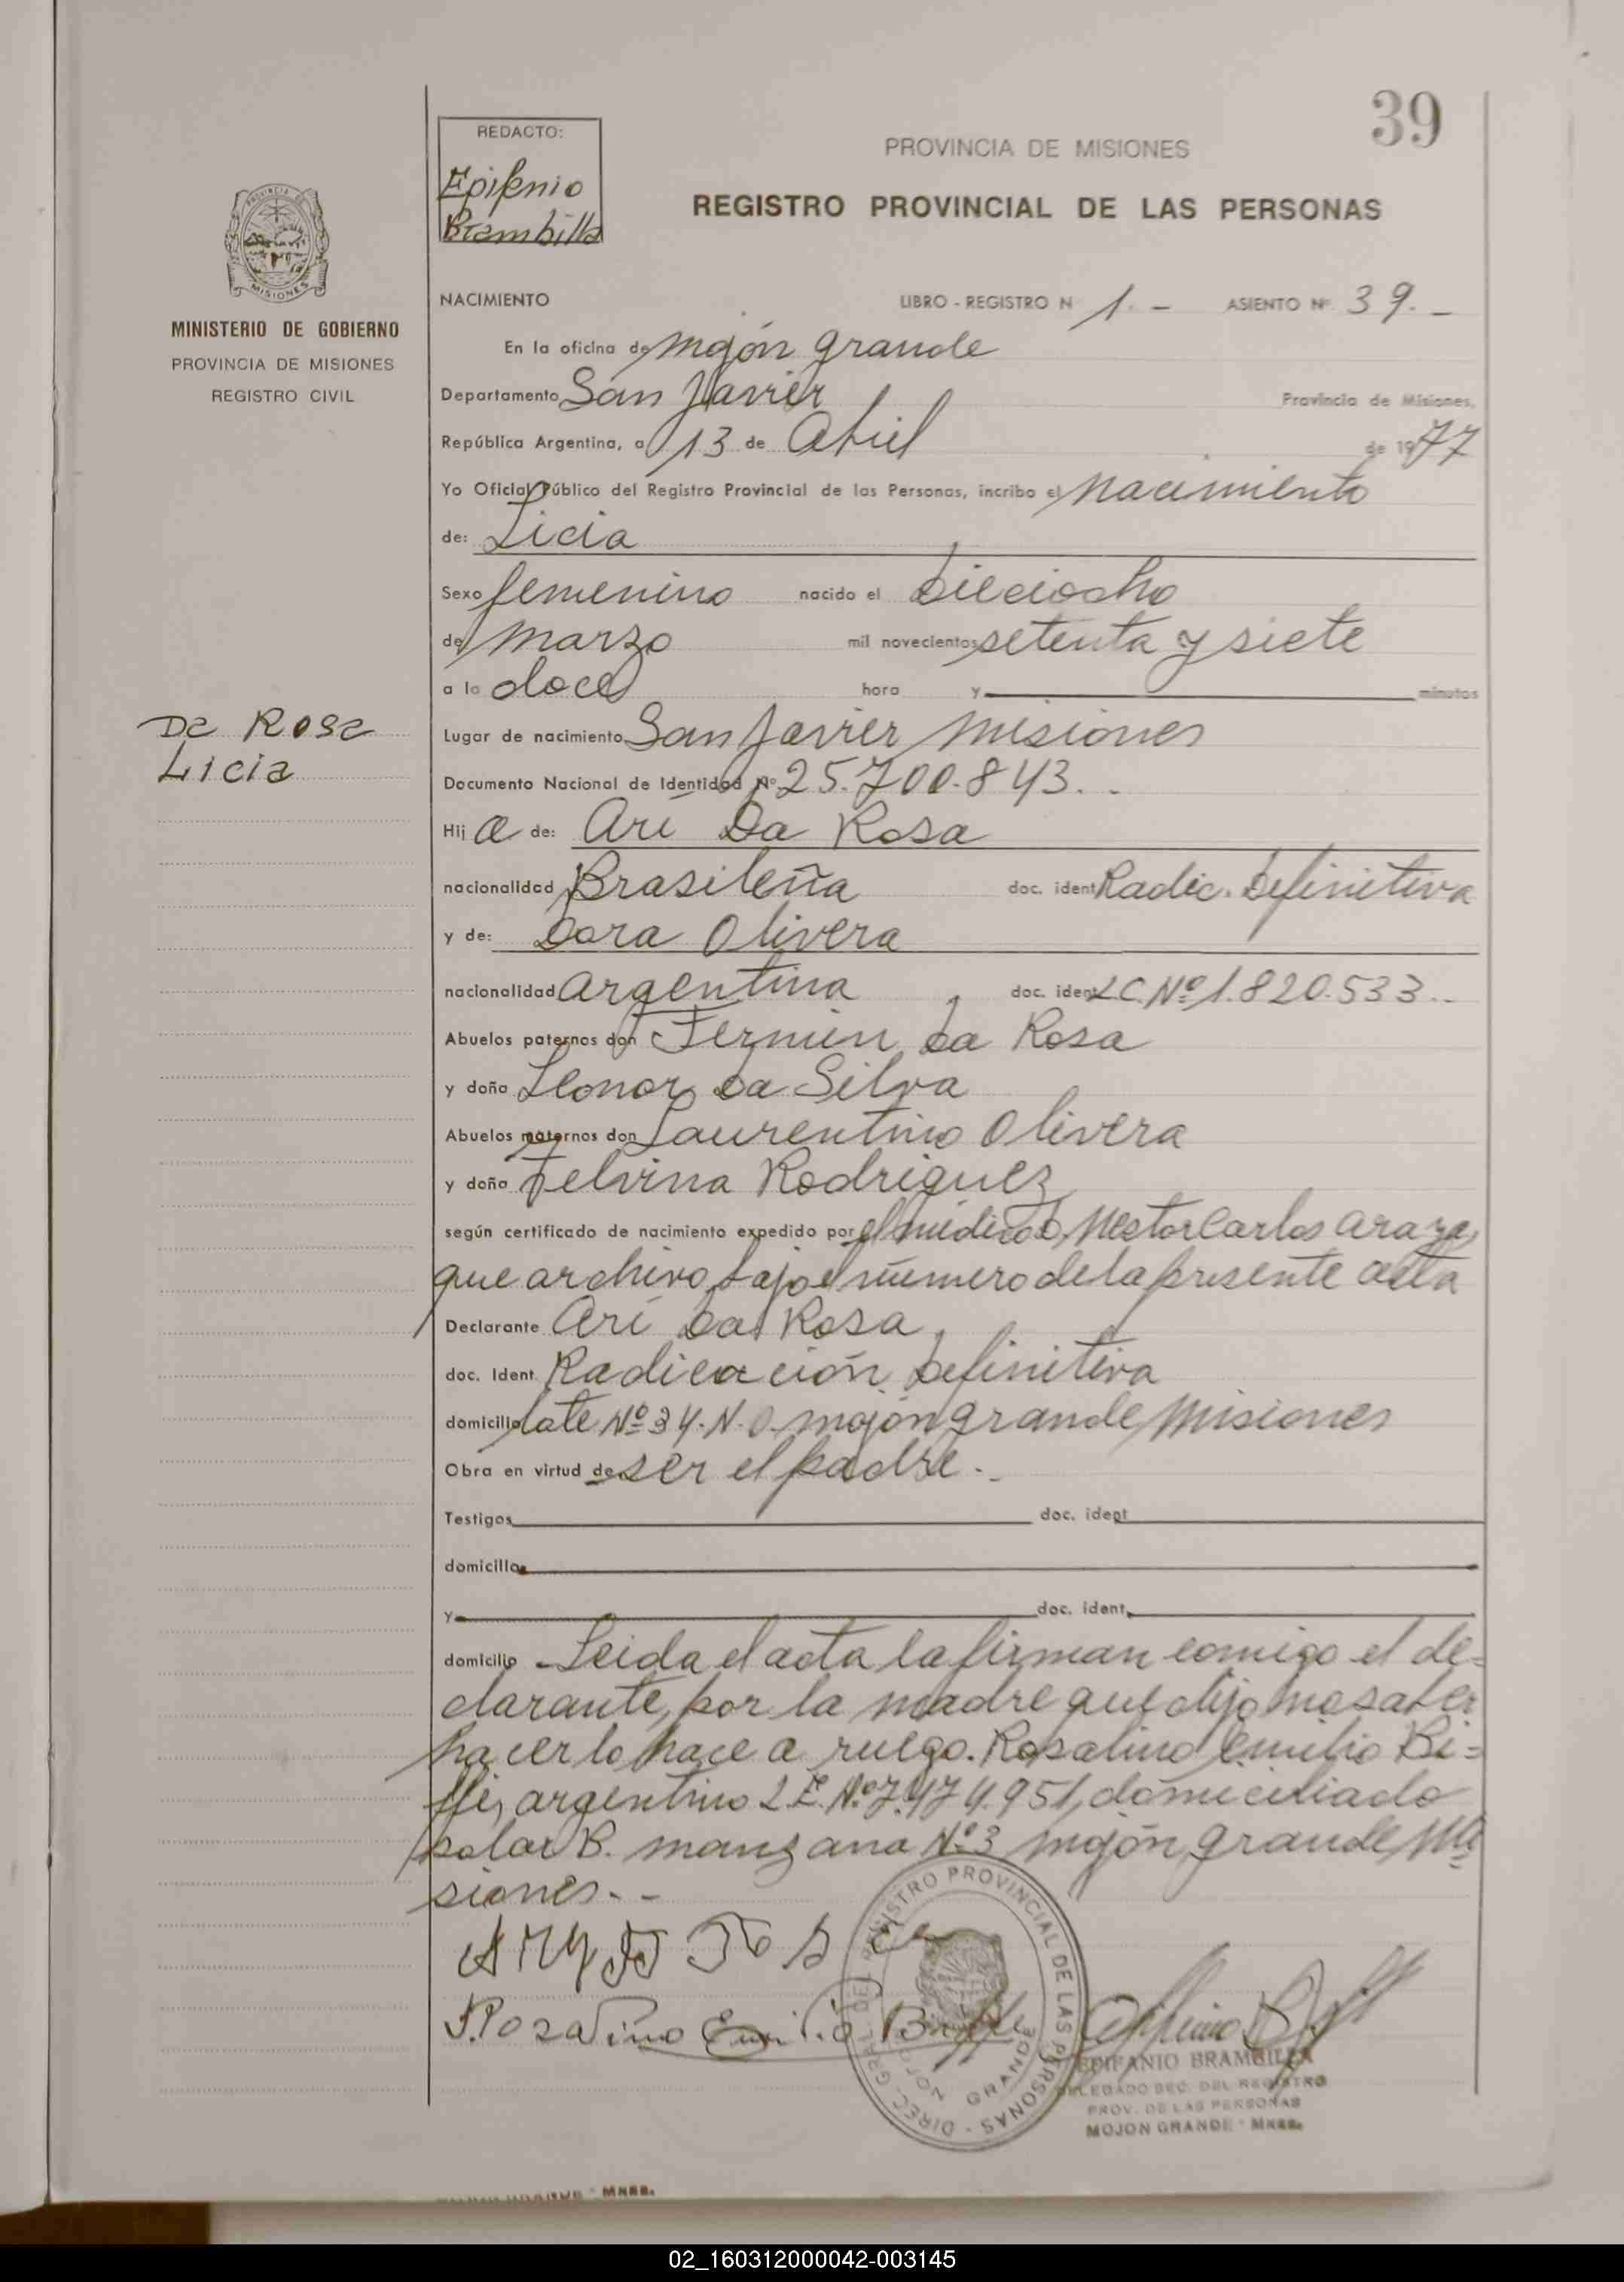 39
REDACTO:
Epifanio
Brambilla
PROVINCIA DE MISIONES
REGISTRO PROVINCIAL DE LAS PERSONAS
MISIONES
MINISTERIO DE GOBIERNO
PROVINCIA DE MISIONES
REGISTRO CIVIL
NACIMIENTO LIBRO - REGISTRO N 1. - ASIENTO Nº 39. -
En la oficina de Mojón grande
Departamento San Javier Provincia de Misiones,
República Argentina, a 13 de Abril de 1977
Yo Oficial Público del Registro Provincial de las Personas, incribo el nacimiento
de: Licia
Sexo femenino nacido el Dieciocho
de Marzo mil novecientos setenta y siete
a la doce hora y minutos
Da Rosa
Licia
Lugar de nacimiento San Javier Misiones
Documento Nacional de Identidad Nº 25.700.843. -
Hij a de: Ari Da Rosa
nacionalidad Brasileña doc. ident Radic. Definitiva
y de: Dora Olivera
nacionalidad argentina doc. ident LC. Nº 1.820.533. -
Abuelos paternos don Fermin Da Rosa
y doña Leonor Da Silva
Abuelos maternos don Laurentino Olivera
y doña Felvina Rodriguez
según certificado de nacimiento expedido por el médico D. Nestor Carlos Araza,
que archivo bajo el número de la presente acta
Declarante Ari Da Rosa,
doc. Ident. Radicación Definitiva
domicilio lote Nº 34. N. O. Mojón grande Misiones
Obra en virtud de ser el padre. -
Testigos doc. ident
domicilio
y doc. ident.
domicilio - Leida el acta la firman comigo el de=
clarante, por la madre que dijo no saber
hacerlo hace a ruego. Rosalino Emilio Bi=
ffi, argentino L.E. Nº 7.474.951, domiciliado
solar B. manzana Nº 3 Mojón grande Mi
siones. -
Rozalino Emilio Biffi
DIREC. GRAL. DEL REGISTRO PROVINCIAL DE LAS PERSONAS
GRANDE
EPIFANIO BRAMBILLA
DELEGADO SEC. DEL REGISTRO
PROV. DE LAS PERSONAS
MOJON GRANDE - Mnes.
02_160312000042-003145